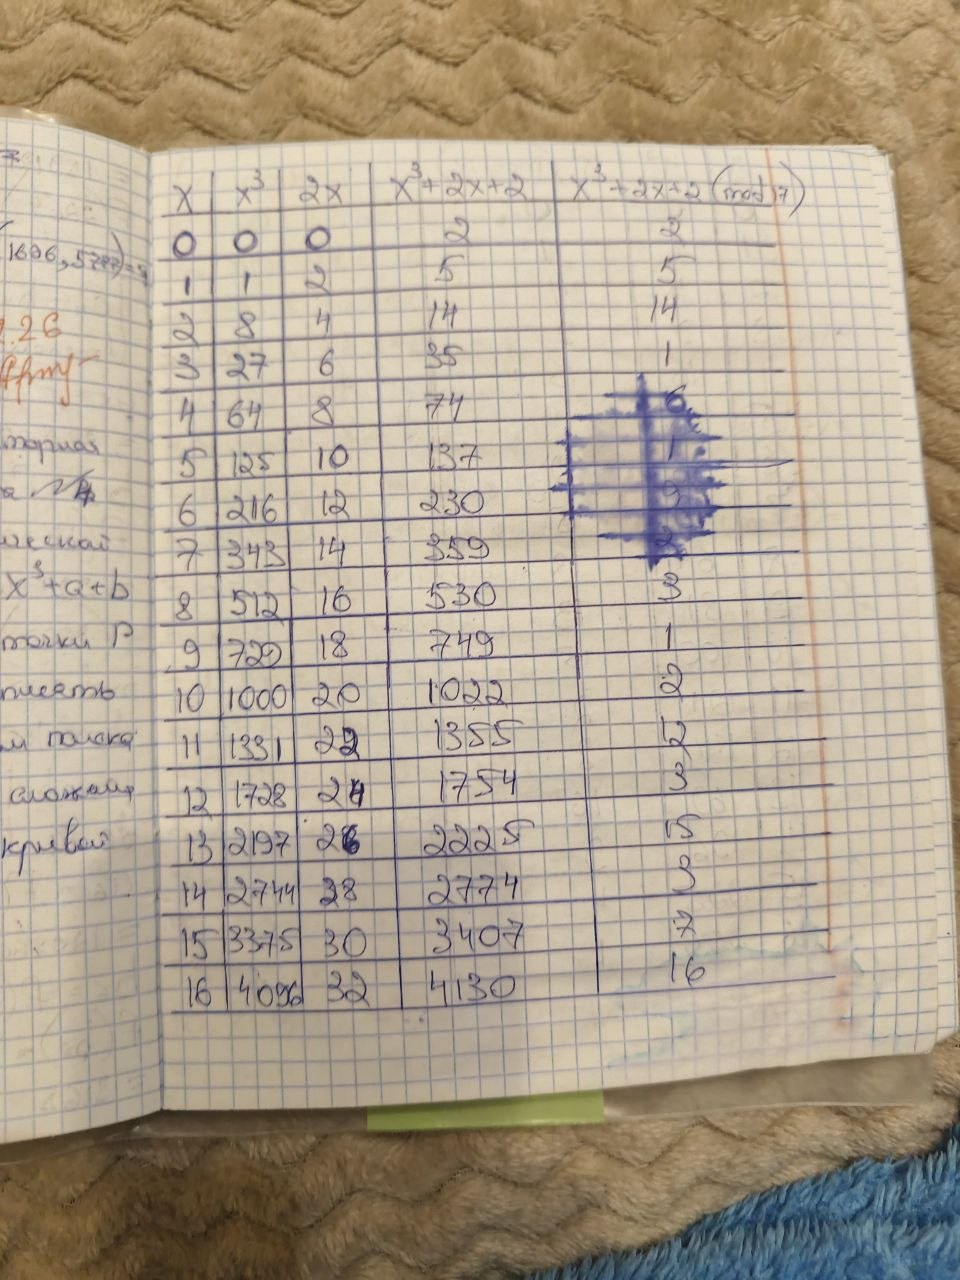 (1606,5787)=
1.26
торная
ческой
x³+a+b
точки P
писать
м поиска
сложения
кривой
x x³ 2x x³+2x+2 x³+2x+2 (mod 17)
0 0 0 2 2
1 1 2 5 5
2 8 4 14 14
3 27 6 35 1
4 64 8 74 6
5 125 10 137 1
6 216 12 230 9
7 343 14 359 2
8 512 16 530 3
9 729 18 749 1
10 1000 20 1022 2
11 1331 22 1355 12
12 1728 24 1754 3
13 2197 26 2225 15
14 2744 28 2774 3
15 3375 30 3407 7
16 4096 32 4130 16